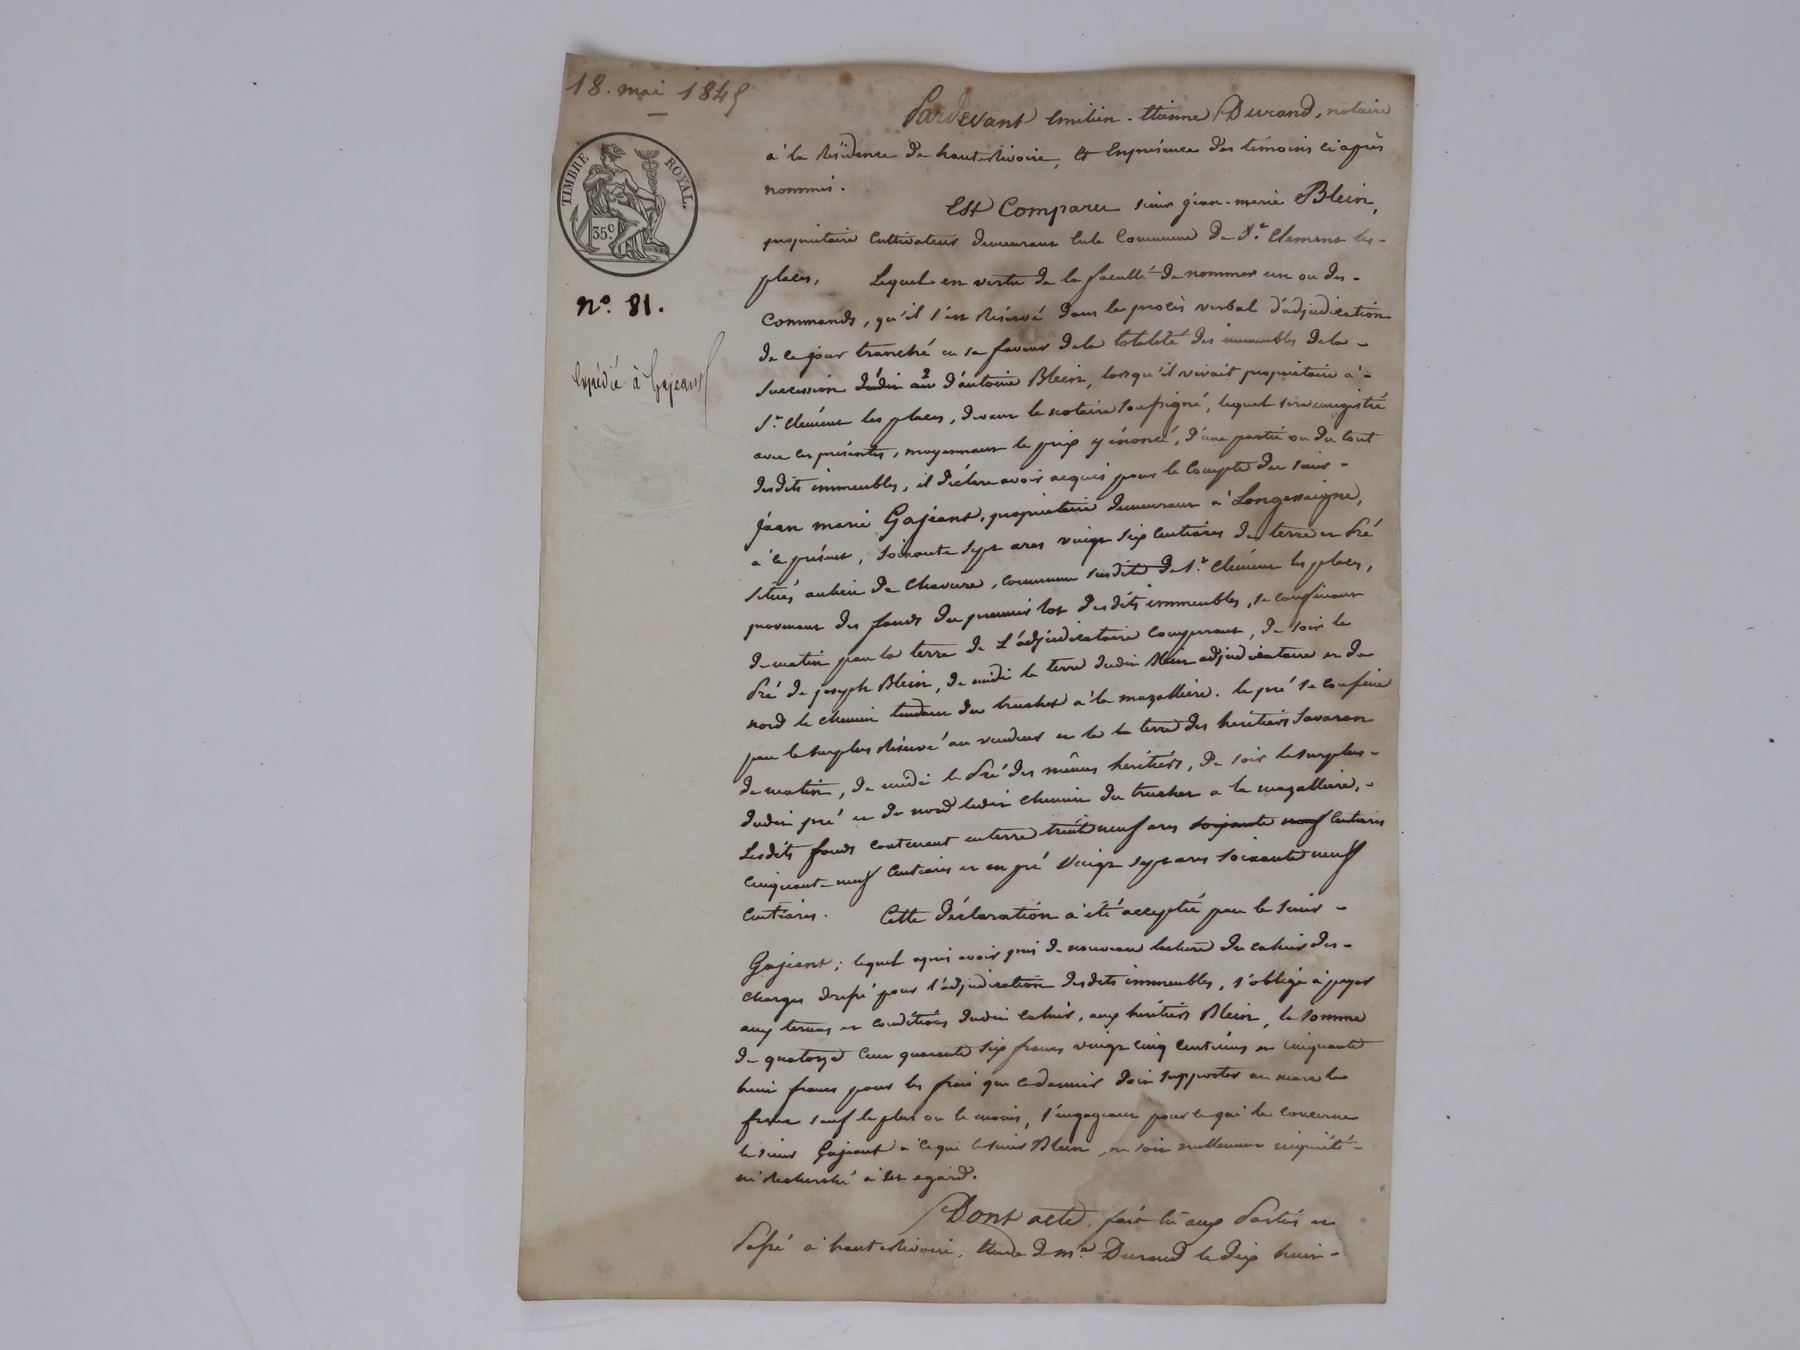 18. mai 1845
TIMBRE ROYAL.
35c.
n°. 81.
Expédié à Gajeant
Pardevant Emilien-Etienne Durand, notaire
à la Résidence de hauterivoire, et Enprésence des témoins ci après
nommés.
Est Comparu sieur jéan-marie Blein,
propriétaire Cultivateur demeurant enla Commune De St. Clément les-
places, Lequel en vertu de la faculté de nommer un ou des-
Commands, qu'il s'est Réservé Dans le procès verbal d'adjudication
de ce jour tranché en sa faveur dela totalité des immeubles dela-
succession d'antoine Blein, lorsqu'il vivait propriétaire à-
St. Clément les places, devant le notaire soussigné, lequel sera enregistré
avec ces présentes, moyennant le prix y énoncé, d'une partie ou du tout
desdits immeubles, il déclare avoir acquis pour le Compte du sieur-
jéan marie Gajeant, propriétaire demeurant à Longessaigne,
à ce présent, soixante sept ares vingt six centiares de terre et Pré
situés aulieu de Chavure, commune susdite de St. Clément les places,
provenant des fonds du premier lot desdits immeubles, se confinant
de matin par la terre de L'adjudicataire comparant, de soir le
Pré de joseph Blein, de midi la terre dudit Blein adjudicataire et de
nord le chemin tendant du trucher à la mazalliere. le pré se confine
par le surplus réservé au vendeur et la terre des heritiers Savaron
de matin, de midi le Pré des mêmes héritiers, de soir le surplus-
dudit pré et de nord ledit chemin du trucher a la mazalliere,-
Lesdits fonds contenant enterre trente neuf ares soixante neuf Centiares
cinquante-neuf Centiares et en pré Vingt sept ares soixante neuf
centiares. Cette déclaration à été acceptée par le sieur-
Gajeant; lequel après avoir pris de nouveau lecture du cahier des-
charges dressé pour l'adjudication desdits immeubles, s'oblige à payer
aux termes et conditions dudit cahier, aux héritiers Blein, la somme
de quatorze cent quarante six francs vingt cinq centimes et cinquante
huit francs pour les frais que cedernier doit supporter au marc le
franc sauf le plus ou le moins, s'engageant pour ce qui le concerne
le sieur Gajeant à ce que le sieur Blein ne soit nullement inquiété-
ni Recherché à cet egard.
Dont acte, fait lu aux Parties et
Passé à hauterivoire, Etude de me. Durand le dix huit-